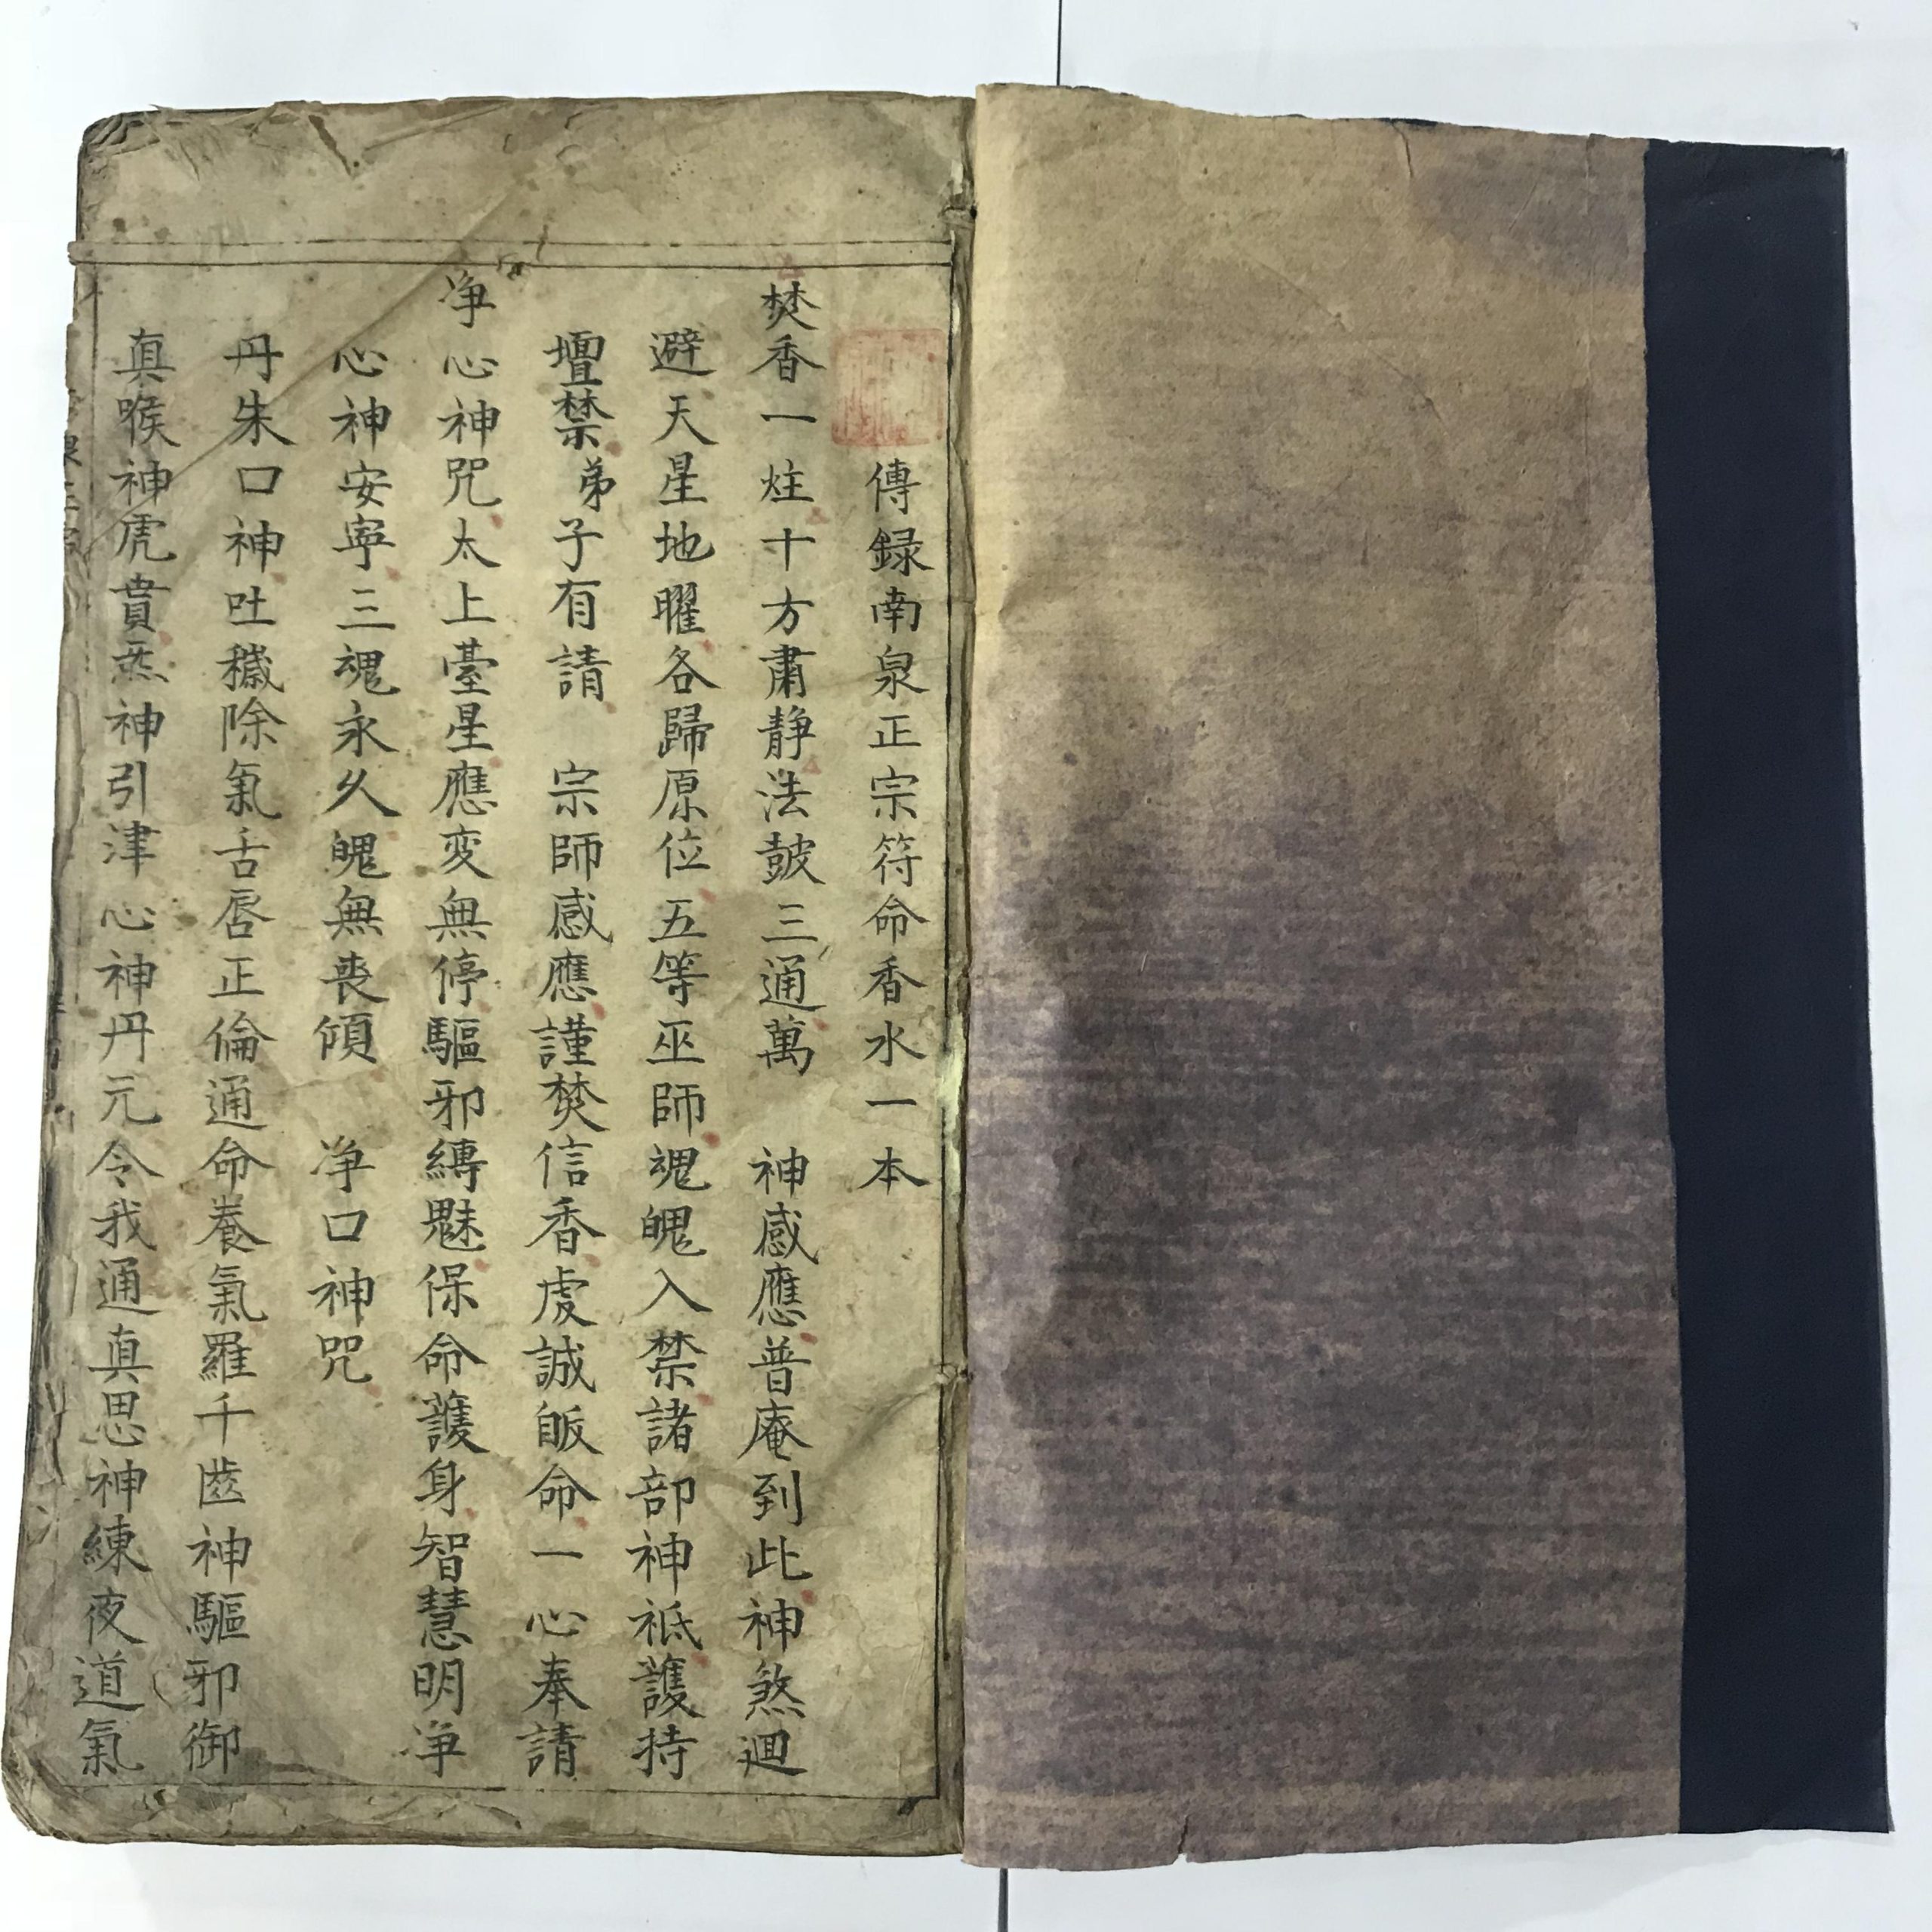 傳録南泉正宗符命香水一本
焚香一炷十方肅静法皷三通萬　神感應普庵到此神煞迴
避天星地曜各歸原位五等巫師魂魄入禁諸部神祇護持
壇禁弟子有請　宗師感應謹焚信香虔誠皈命一心奉請
净心神咒太上臺星應変無停驅邪縛魅保命護身智慧明净
心神安寧三魂永久魄無喪傾　净口神咒
丹朱口神吐穢除氣舌唇正倫通命養氣羅千齒神驅邪御
真喉神虎賁炁神引津心神丹元令我通真思神練夜道氣